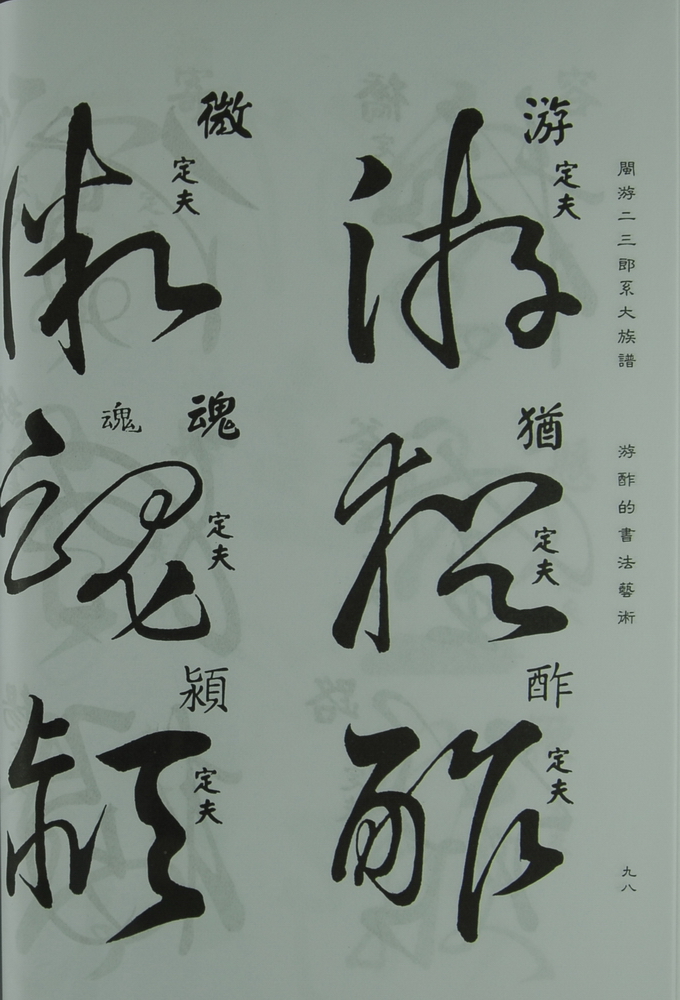 閩游二三郎系大族譜
游酢的書法藝術
九八
游
定夫
游
猶
定夫
猶
酢
定夫
酢
微
定夫
微
魂
魂
定夫
魂
潁
定夫
潁